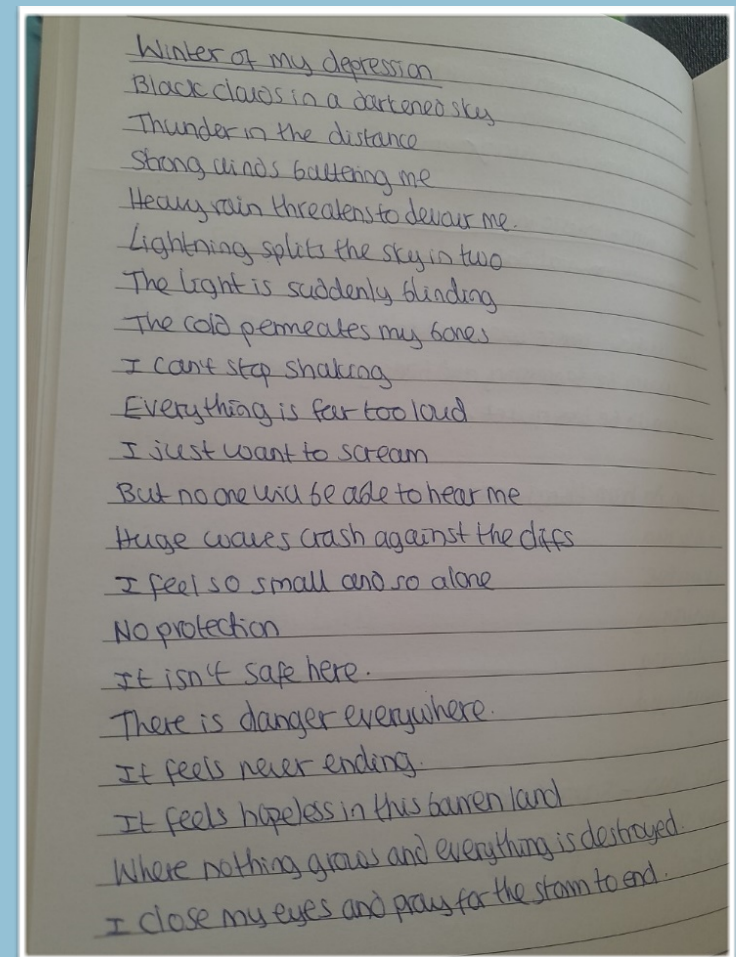 Winter of my depression
Black clouds in a darkened sky
Thunder in the distance
Strong winds battering me
Heavy rain threatens to devour me.
Lightning splits the sky in two
The light is suddenly blinding
The cold permeates my bones
I can't stop shaking
Everything is far too loud
I just want to scream
But no one will be able to hear me
Huge waves crash against the cliffs
I feel so small and so alone
No protection
It isn't safe here.
There is danger everywhere.
It feels never ending.
It feels hopeless in this barren land
Where nothing grows and everything is destroyed.
I close my eyes and pray for the storm to end.